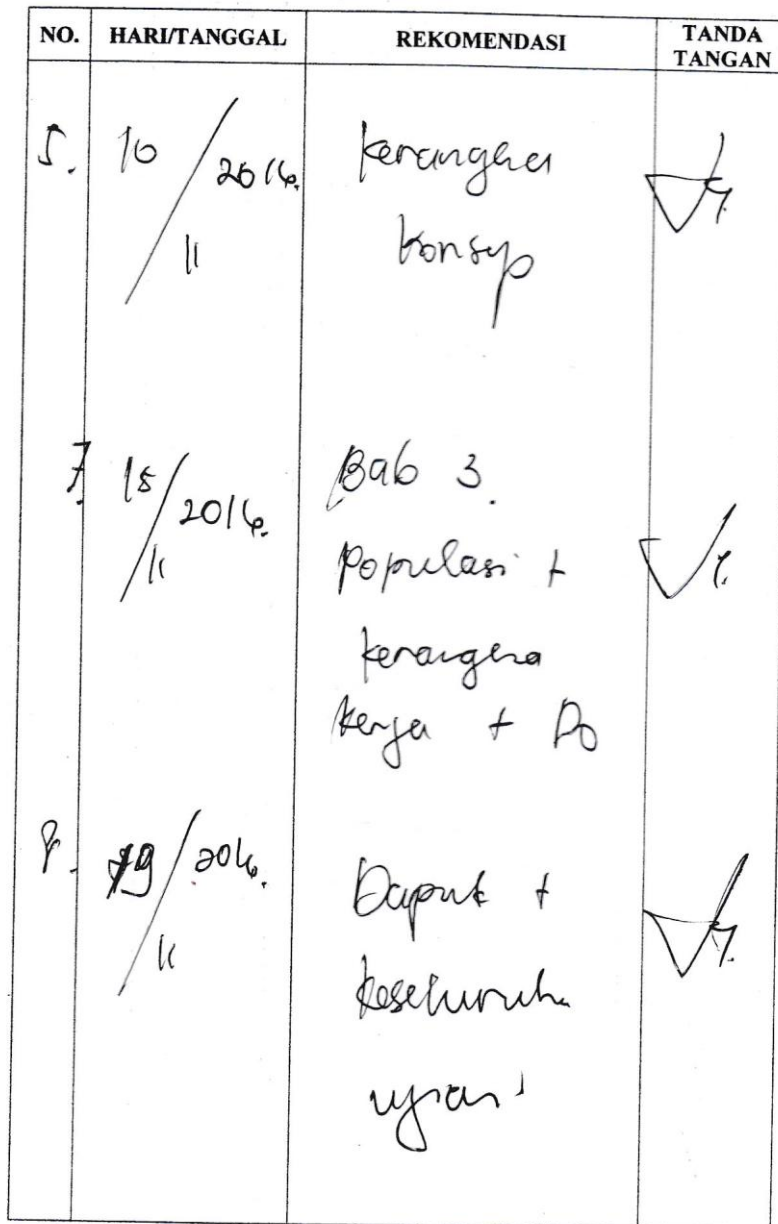 NO. HARI/TANGGAL REKOMENDASI TANDA TANGAN
5. 10/11 2016. Kerangka
Konsep
7. 15/11 2016. Bab 3.
Populasi +
Kerangka
Kerja + DO
8. 19/11 2016. Dapus +
Keseluruha
ujian